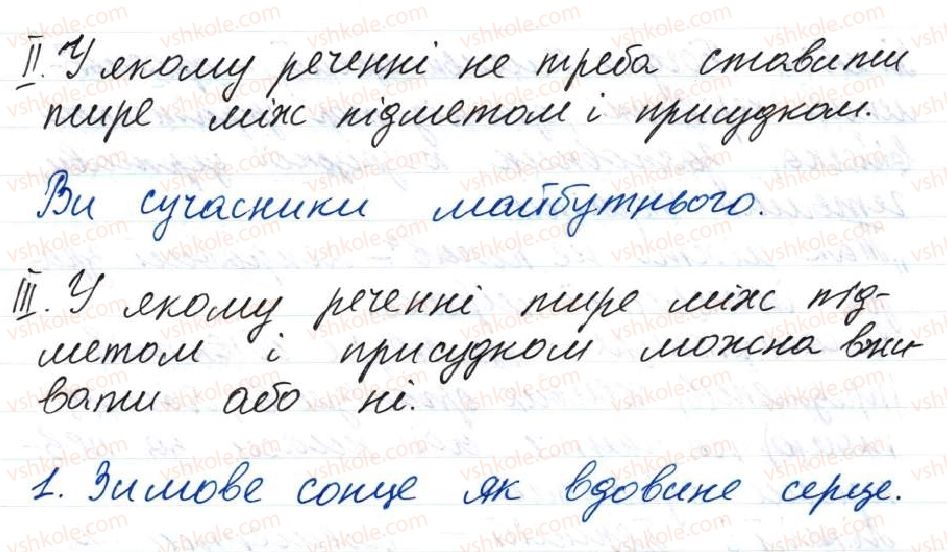 II. У якому реченні не треба ставити
тире між підметом і присудком.
Ви сучасники майбутнього.
III. У якому реченні тире між під-
метом і присудком можна вжи-
вати або ні.
1. Зимове сонце як вдовине серце.